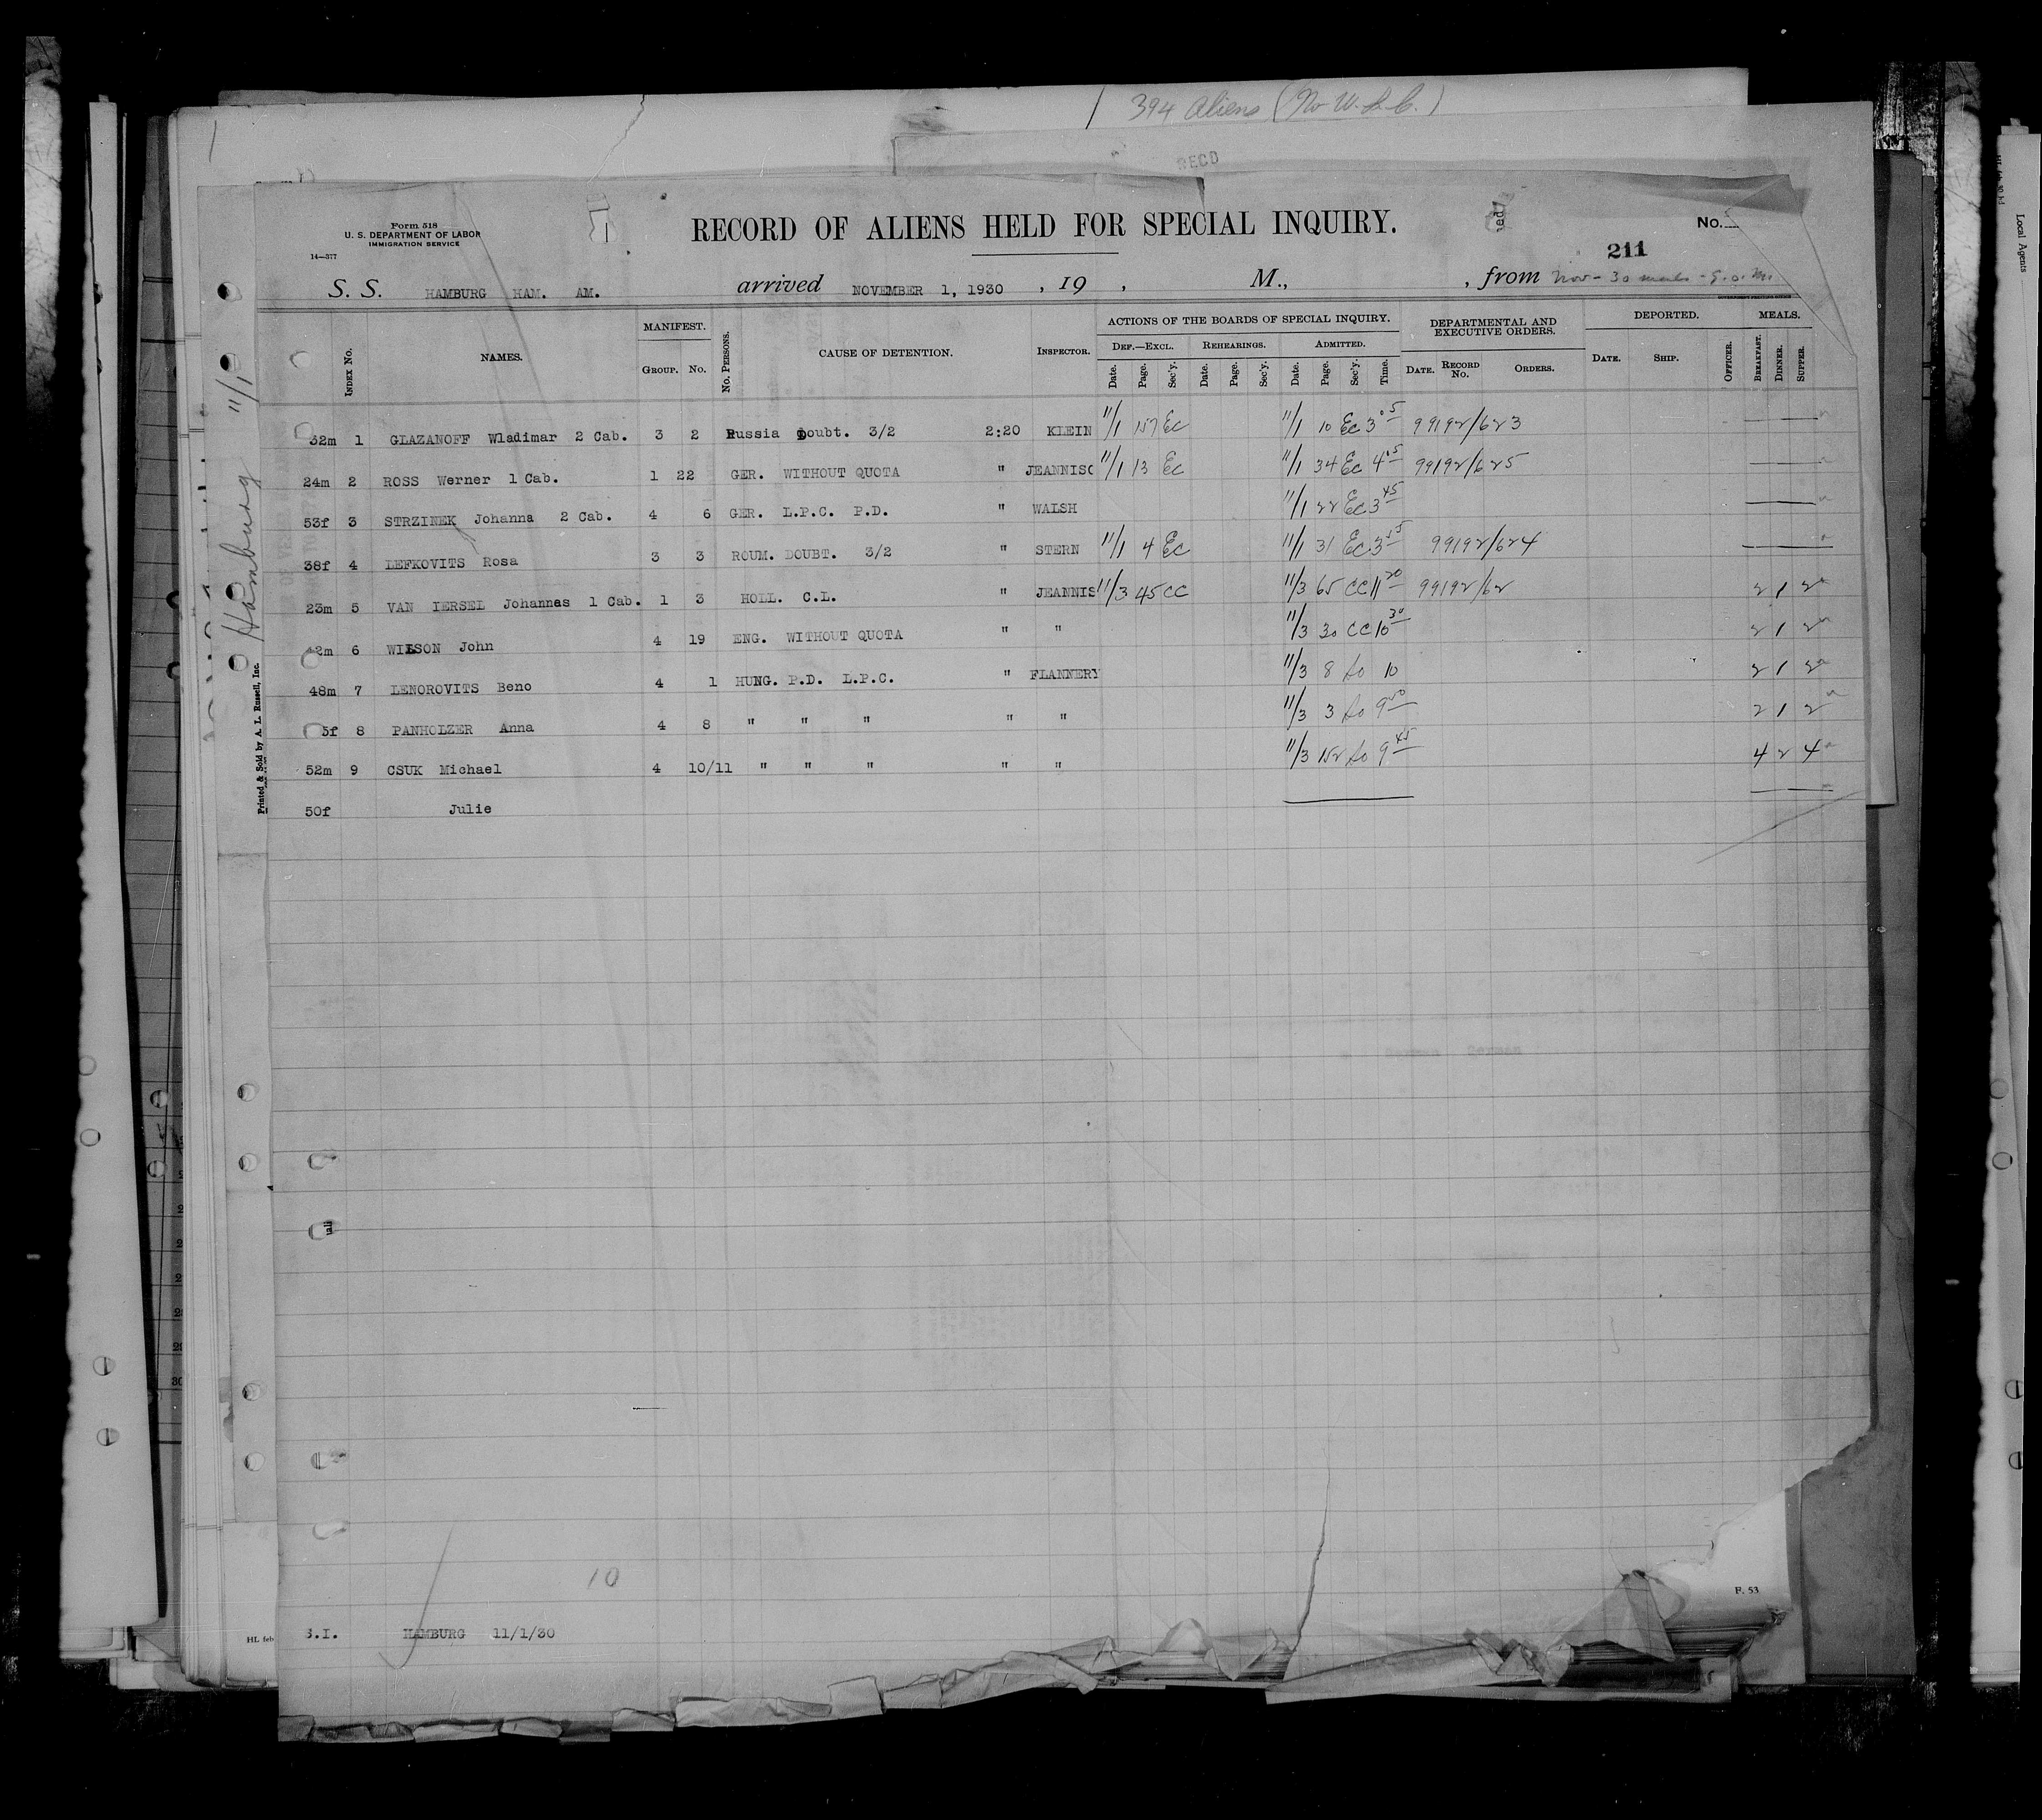 394 Aliens (No U.S.C.)
RECD
Form 518
U. S. DEPARTMENT OF LABOR
IMMIGRATION SERVICE
14—377
RECORD OF ALIENS HELD FOR SPECIAL INQUIRY.
No. 5
211
S. S. HAMBURG HAM. AM. arrived NOVEMBER 1, 1930 , 19 , M., , from Nov - 30 meals -
INDEX No. NAMES. MANIFEST. GROUP. No. No. PERSONS. CAUSE OF DETENTION. INSPECTOR. ACTIONS OF THE BOARDS OF SPECIAL INQUIRY. DEF.—EXCL. Date. Page. Sec'y. REHEARINGS. Date. Page. Sec'y. ADMITTED. Date. Page. Sec'y. Time. DEPARTMENTAL AND EXECUTIVE ORDERS. DATE. RECORD No. ORDERS. DEPORTED. DATE. SHIP. OFFICER. MEALS. BREAKFAST. DINNER. SUPPER.
32m 1 GLAZANOFF Wladimar 2 Cab. 3 2 Russia Doubt. 3/2 2:20 KLEIN 11/1 157 EC 11/1 10 EC 3 05 99192/623
24m 2 ROSS Werner 1 Cab. 1 22 GER. WITHOUT QUOTA " JEANNISO 11/1 13 EC 11/1 34 EC 4 05 99192/625
53f 3 STRZINEK Johanna 2 Cab. 4 6 GER. L.P.C. P.D. " WALSH 11/1 22 EC 3 45
38f 4 LEFKOVITS Rosa 3 3 ROUM. DOUBT. 3/2 " STERN 11/1 4 EC 11/1 31 EC 3 55 99192/624
23m 5 VAN IERSEL Johannes 1 Cab. 1 3 HOLL. C.L. " JEANNIS 11/3 45 CC 11/3 65 CC 11 20 99192/62 2 1 2
42m 6 WILSON John 4 19 ENG. WITHOUT QUOTA " " 11/3 30 CC 10 30 2 1 2
48m 7 LENOROVITS Beno 4 1 HUNG. P.D. L.P.C. " FLANNERY 11/3 8 10 2 1 2
5f 8 PANHOLZER Anna 4 8 " " " " " 11/3 3 9 50 2 1 2
52m 9 CSUK Michael 4 10/11 " " " " " 11/3 152 9 45 4 2 4
50f Julie
Hamburg 11/1
Printed & Sold by A. L. Russell, Inc.
10
S.I. HAMBURG 11/1/30
HL feb
F. 53
Local Agents